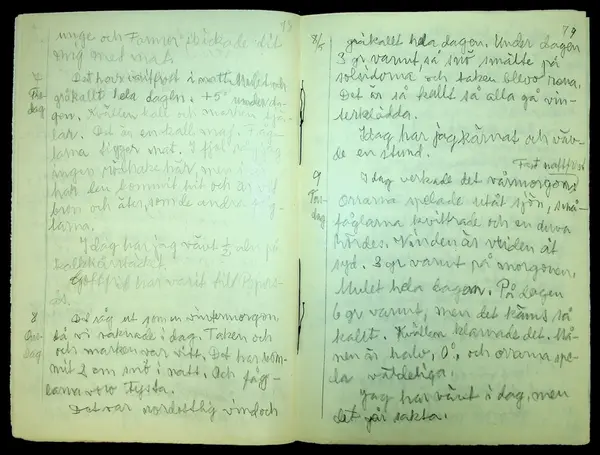 78
unge och Farmor skickade dit
mig med mat.
7
Tis-
dag
Det har varit frost i natt. Mulet och
gråkallt hela dagen. +5° under da-
gen. Kvällen kall och marken
Det är en kall maj. Fåg-
larna tigger mat. I fjol
ingen rödhake här, men i
en kommit hit och är vid
bron och äter, som de andra fåg-
larna.
I dag har jag vävt ½ aln på
Gottfrid har varit till
8
Ons-
dag
Det såg ut som en vintermorgon,
då vi vaknade i dag. Taken och
och marken var vitt. Det har kom-
mit 2 cm snö i natt. Och fåg-
larna voro tysta.
Det var nordostlig vind och
79
8/5
gråkallt hela dagen. Under dagen
3 gr varmt så snö smälte på
solsidorna och taken blevo rena.
Det är så kallt så alla gå vin-
terklädda.
Idag har jag kärnat och väv-
de en stund.
Fast nattfrost
9
Tors-
dag
I dag verkade det vårmorgon
Orrarna spelade utåt sjön, små-
fåglarna kvittrade och en duva
hördes. Vinden är vriden åt
syd. 3 gr varmt på morgonen.
Mulet hela dagen. På dagen
6 gr varmt, men det känns så
kallt. Kvällen klarnade det. Må-
nen är halv, 0°, och orrarna spe-
la väldeliga.
Jag har vävt i dag, men
det går sakta.